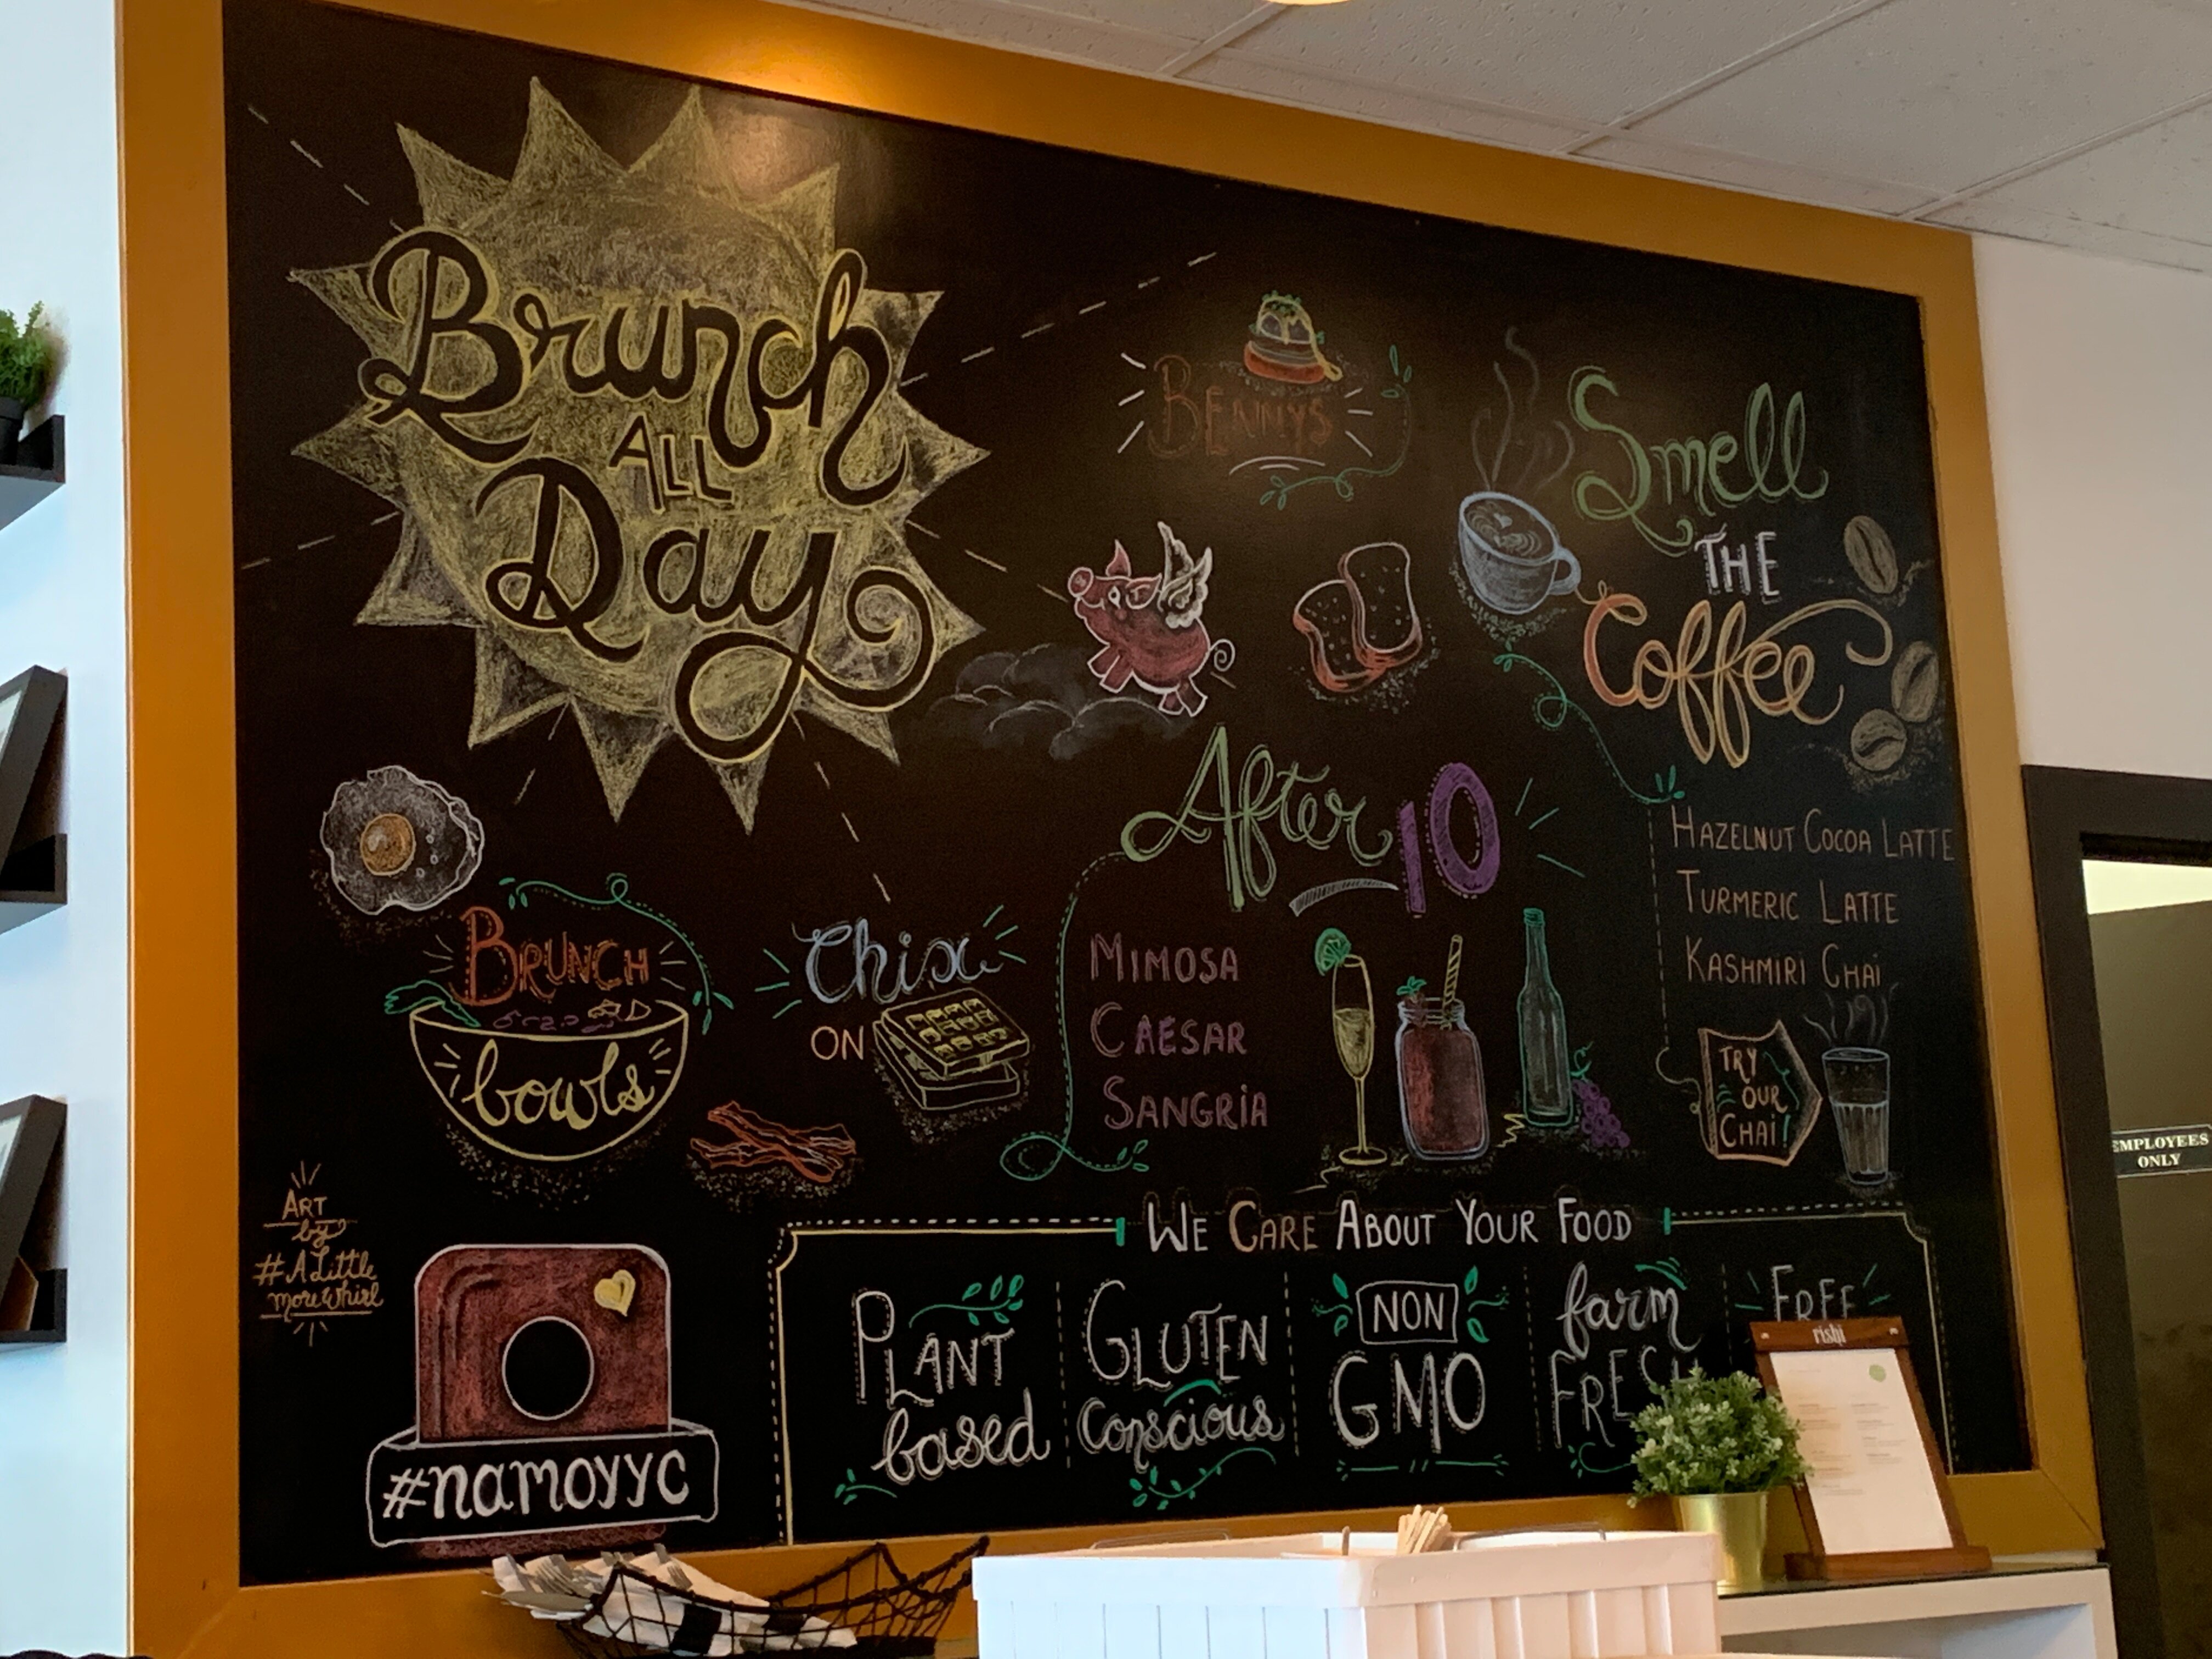 Brunch
ALL
Day
BENNYS
Smell
THE
Coffee
After 10
HAZELNUT COCOA LATTE
TURMERIC LATTE
KASHMIRI CHAI
TRY
OUR
CHAI!
MIMOSA
CAESAR
SANGRIA
BRUNCH
bowls
Chix
ON
ART
by
#ALittle
morewhirl
#namoyyc
WE CARE ABOUT YOUR FOOD
PLANT
based
GLUTEN
Conscious
NON
GMO
farm
FRESH
FREE
rishi
EMPLOYEES
ONLY